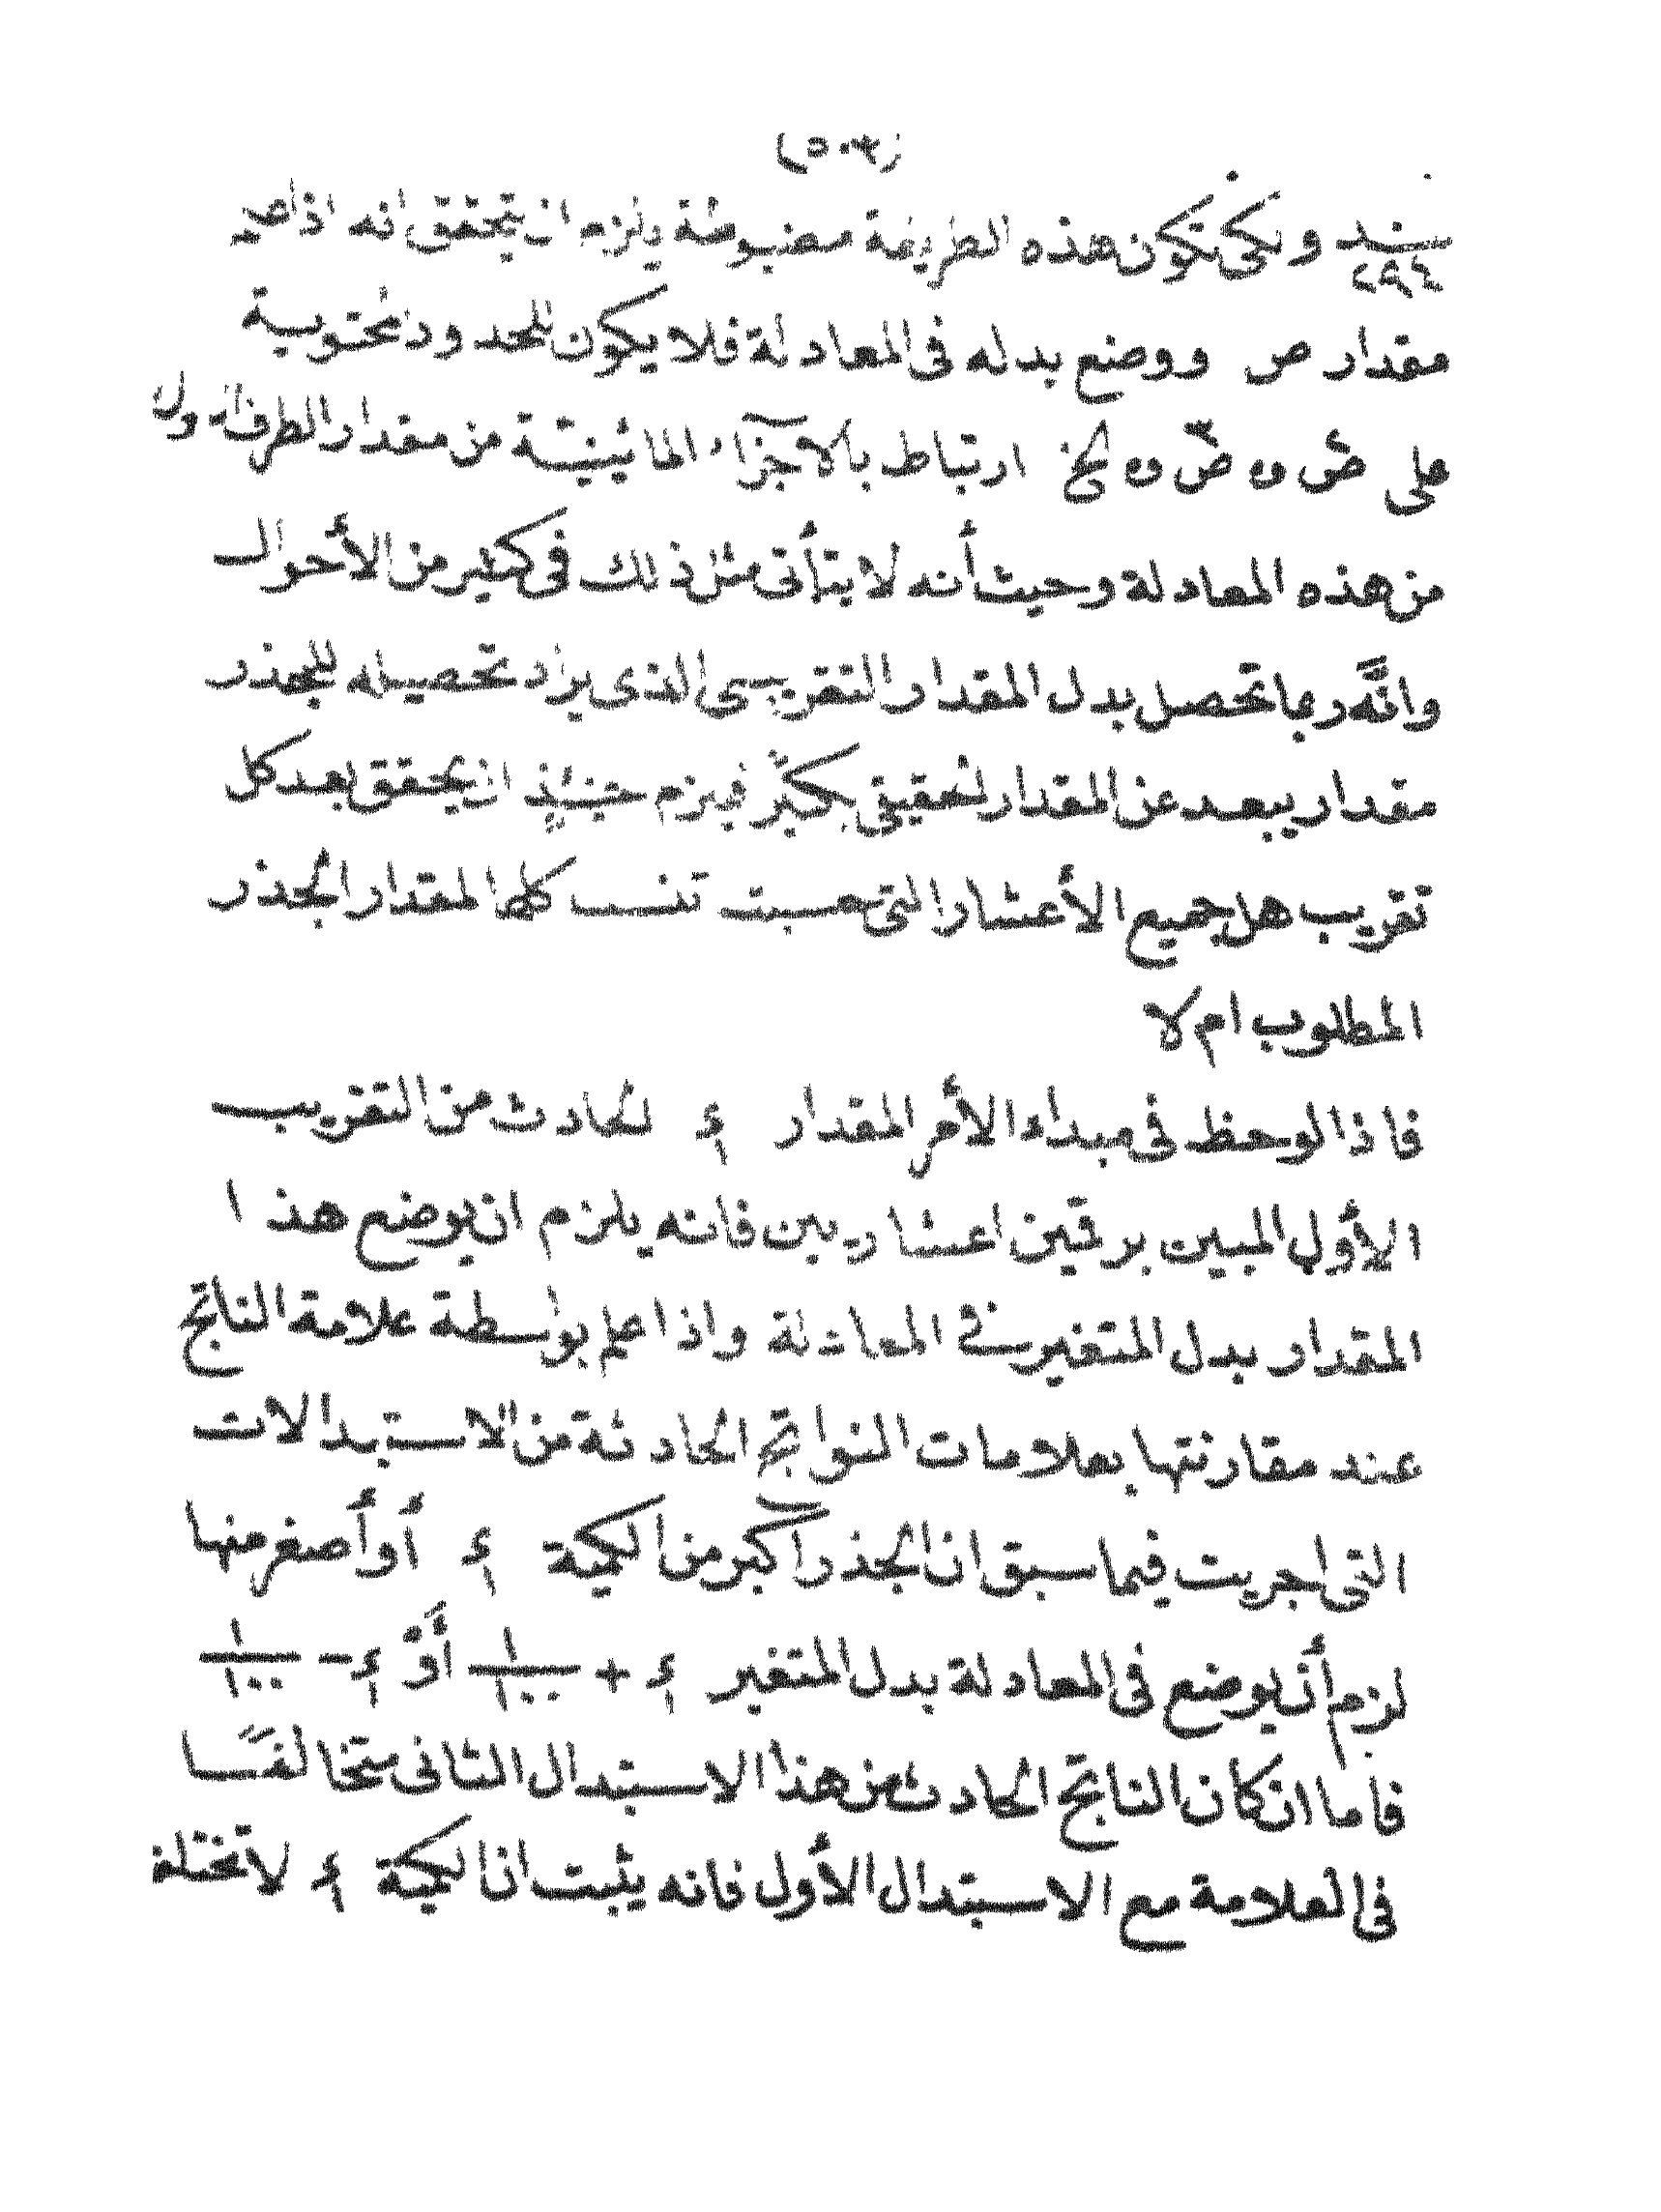 (٥٠٣)
ولكى تكون هذه الطريقة مضبوطة يلزم ان يتحقق انه اذا
مقدار ص ووضع بدله فى المعادلة فلا يكون للحدود المحتوية
على ص و ص و ص و الخ ارتباط بالاجزاء المائينية من مقدار الطرف الاول
من هذه المعادلة وحيث أنه لا يتأتى مثل ذلك فى كثير من الأحوال
وانَّه ربما تحصل بدل المقدار التقريبى الذى يراد تحصيله للجذر
مقدار يبعد عن المقدار الحقيقى بكثير فيلزم حينئذٍ ان يتحقق بعد كل
تقريب هل جميع الأعشار التى حسبت تنسب كلها لمقدار الجذر
المطلوب ام لا
فاذا لوحظ فى مبداء الأمر المقدار أ الحادث من التقريب
الأول المبين برقمين اعشاريين فانه يلزم ان يوضع هذا
المقدار بدل المتغير فى المعادلة واذا علم بواسطة علامة الناتج
عند مقارنتها بعلامات النواتج الحادثة من الاستبدالات
التى اجريت فيما سبق ان الجذر اكبر من الكمية أ أو أصغر منها
لزم أن يوضع فى المعادلة بدل المتغير أ + ١/١٠٠ أوْ أ - ١/١٠٠
فاما ان كان الناتج الحادث من هذا الاستبدال الثانى متخالفًا
فى العلامة مع الاستبدال الأول فانه يثبت ان الكمية أ لا تختلف